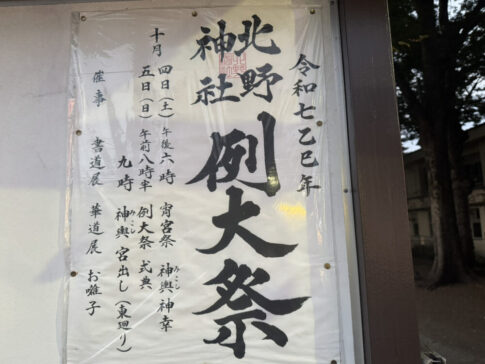 令和七乙巳年
北野
神社
例大祭
十月 四日(土)午後六時 宵宮祭 神輿神幸
みこし
五日(日)午前八時半 例大祭 式典
九時 神輿宮出し(東廻り)
みこし
催事 書道展 華道展 お囃子